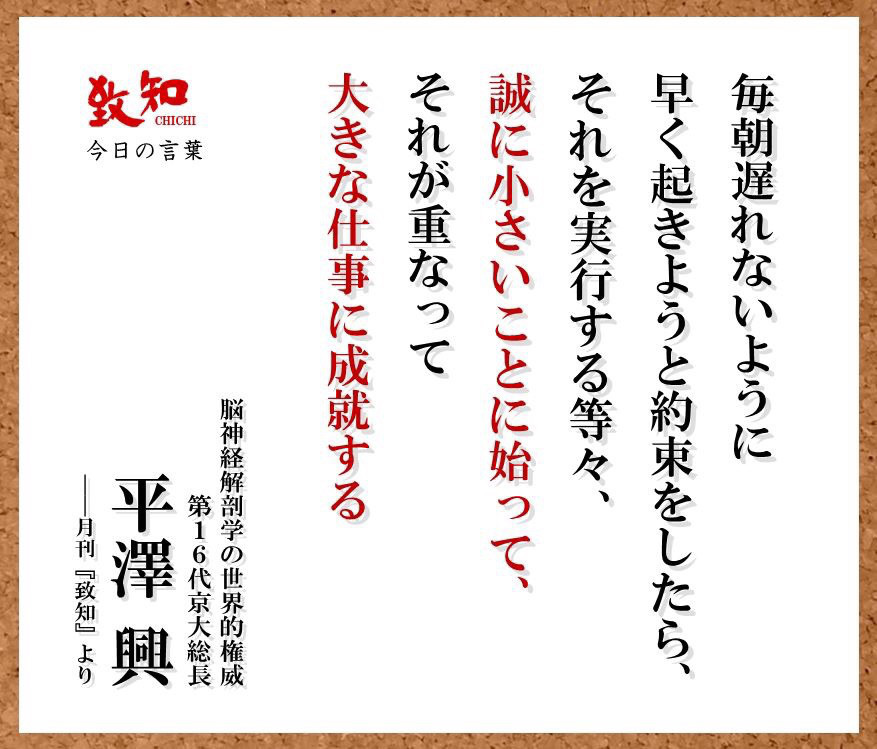 毎朝遅れないように
早く起きようと約束をしたら、
それを実行する等々、
誠に小さいことに始って、
それが重なって
大きな仕事に成就する
脳神経解剖学の世界的権威
第16代京大総長
平澤 興
──月刊『致知』より
致知
CHICHI
今日の言葉